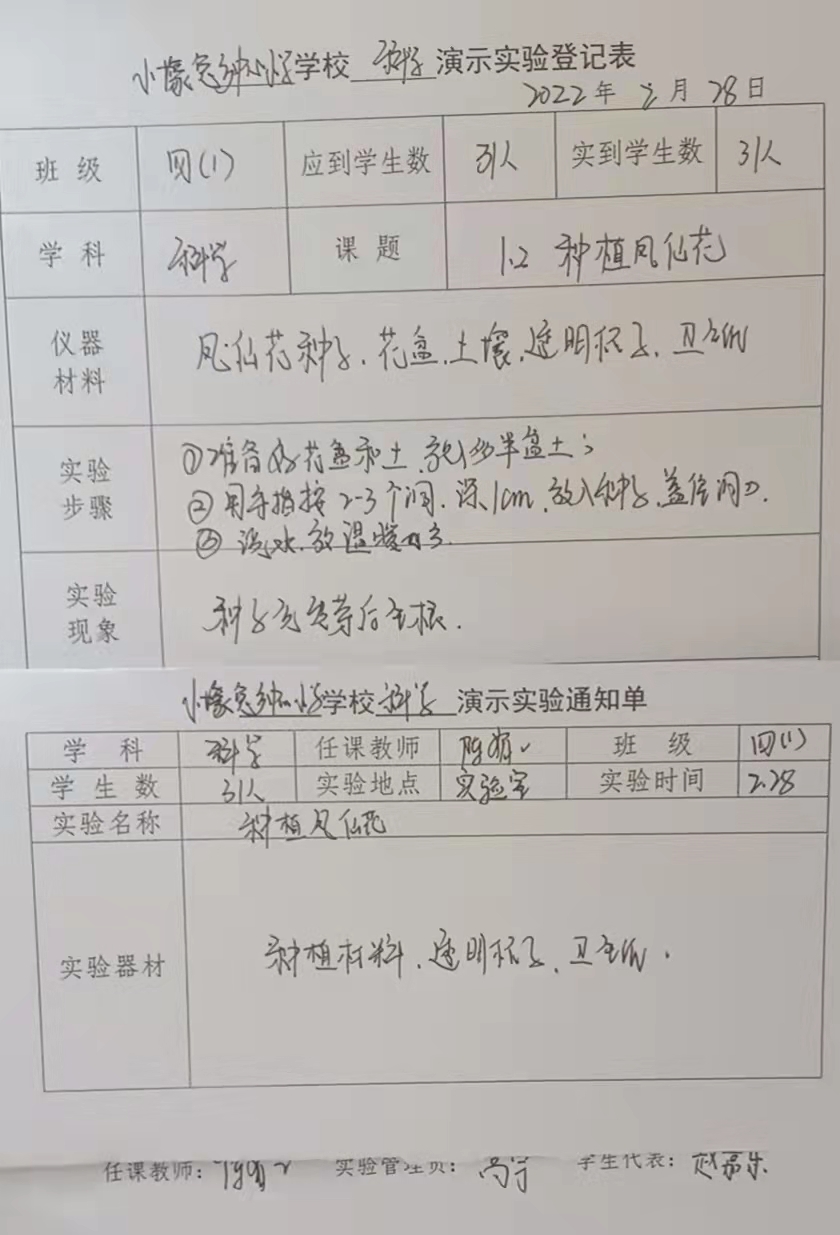 学校 科学 演示实验登记表
2022年 2月 28日
班级 四(1) 应到学生数 31人 实到学生数 31人
学科 科学 课题 1.2 种植凤仙花
仪器材料 凤仙花种子、花盆、土壤、透明杯子、卫生纸
实验步骤 ①准备好花盆和土,放入多半盆土;
②用手指按2-3个洞,深1cm,放入种子,盖住洞口.
③浇水,放温暖
实验现象 种子先发芽后生根.
学校 科学 演示实验通知单
学科 科学 任课教师 班级 四(1)
学生数 31人 实验地点 实验室 实验时间 2.28
实验名称 种植凤仙花
实验器材 种植材料、透明杯子、卫生纸.
任课教师: 实验管理员: 学生代表: